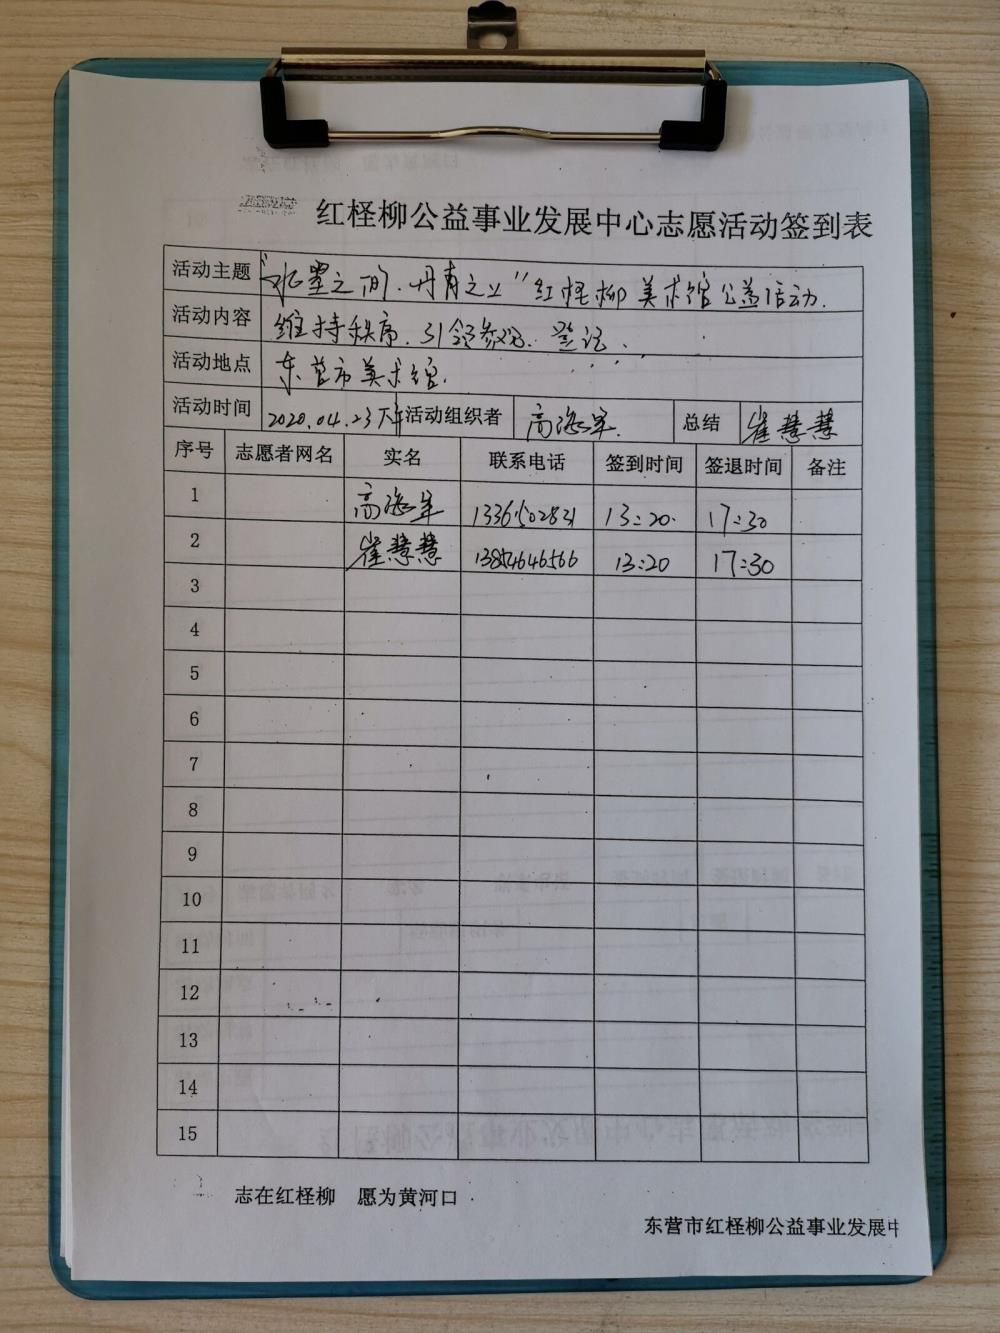 红柽柳公益事业发展中心志愿活动签到表
活动主题 之间.丹青之上"红柽柳美术馆公益活动.
活动内容 维持秩序.引领参观.登记.
活动地点 东营市美术馆.
活动时间 2020.04.23下午 活动组织者 高海军. 总结 崔慧慧
序号 志愿者网名 实名 联系电话 签到时间 签退时间 备注
1 高海军 13361502831 13:20. 17:30
2 崔慧慧 13854646566 13:20 17:30
3
4
5
6
7
8
9
10
11
12
13
14
15
志在红柽柳 愿为黄河口
东营市红柽柳公益事业发展中